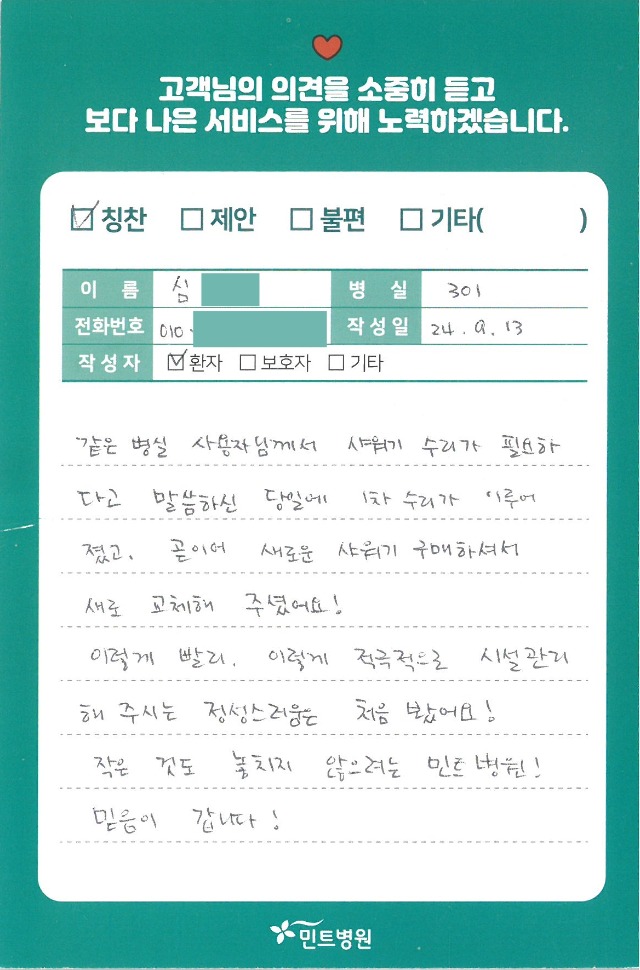 고객님의 의견을 소중히 듣고
보다 나은 서비스를 위해 노력하겠습니다.
칭찬 제안 불편 기타( )
이 름 심 병 실 301
전화번호 010- 작성일 24. 9. 13
작성자 환자 보호자 기타
같은 병실 사용자님께서 샤워기 수리가 필요하
다고 말씀하신 당일에 1차 수리가 이루어
졌고, 곧이어 새로운 샤워기 구매하셔서
새로 교체해 주셨어요!
이렇게 빨리, 이렇게 적극적으로 시설관리
해 주시는 정성스러움은 처음 봤어요!
작은 것도 놓치지 않으려는 민트병원!
믿음이 갑니다!
민트병원